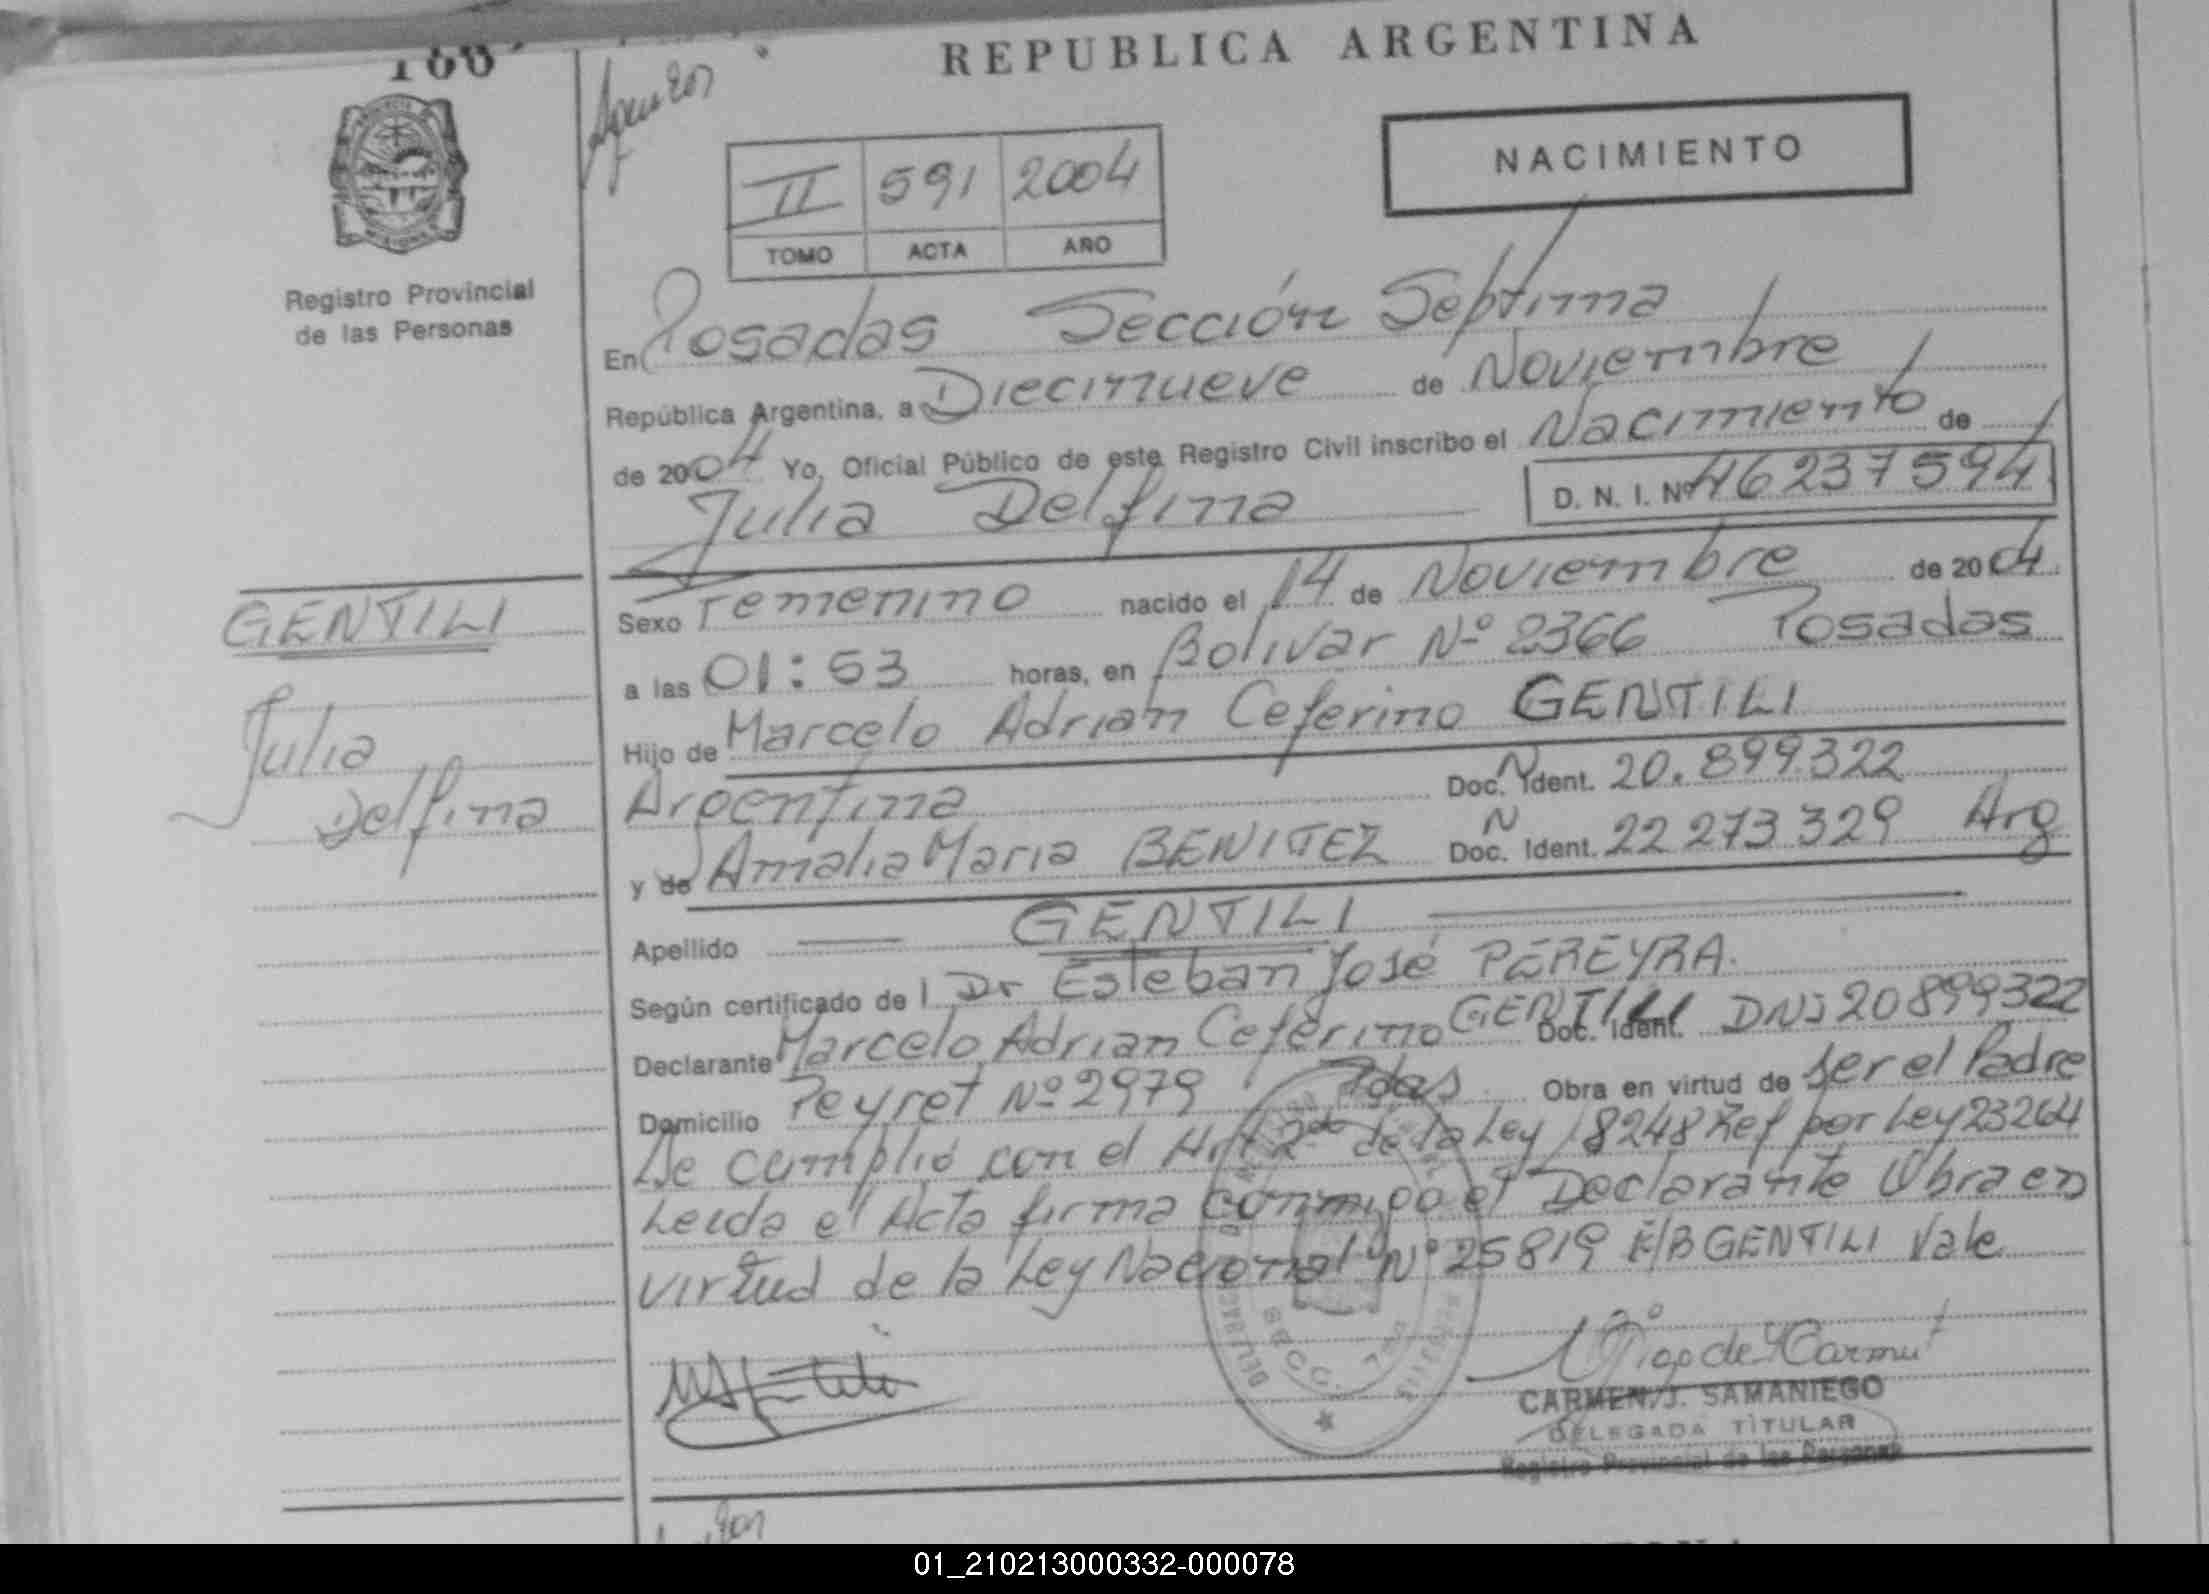 REPUBLICA ARGENTINA
NACIMIENTO
II 591 2004
TOMO ACTA AÑO
Registro Provincial
de las Personas
En Posadas Sección Septima
República Argentina, a Diecinueve de Noviembre
de 2004 Yo, Oficial Público de este Registro Civil inscribo el Nacimiento de
Julia Delfina D. N. I. Nº 46237594
GENTILI
Julia
Delfina
Sexo Femenino nacido el 14 de Noviembre de 2004
a las 01:53 horas, en Bolivar Nº 2366 Posadas
Hijo de Marcelo Adrian Ceferino GENTILI
Argentina Doc. N Ident. 20.899.322
y de Amalia Maria BENITEZ Doc. N Ident. 22 273 329 Arg
Apellido GENTILI
Según certificado de l Dr Esteban José PEREYRA.
Declarante Marcelo Adrian Ceferino GENTILI Doc. Ident. DNI 20899322
Domicilio Peyret Nº 2979 Pdas Obra en virtud de ser el Padre
Se cumplió con el Art 2do de la Ley 18248 Ref por Ley 23264
Leida el Acta firma conmigo el Declarante Obra en
virtud de la Ley Nacional Nº 25819 E/B GENTILI Vale
CARMEN J. SAMANIEGO
DELEGADA TITULAR
Registro Provincial de las Personas
01_210213000332-000078